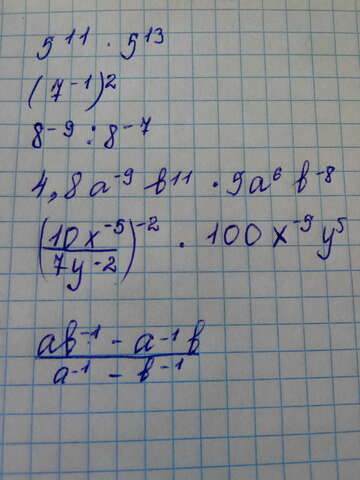 5¹¹ · 5¹³
(7⁻¹)²
8⁻⁹ : 8⁻⁷
4,8a⁻⁹ b¹¹ · 9a⁶ b⁻⁸
(10x⁻⁵ / 7y⁻²)⁻² · 100x⁻⁹y⁵
ab⁻¹ - a⁻¹b / a⁻¹ - b⁻¹